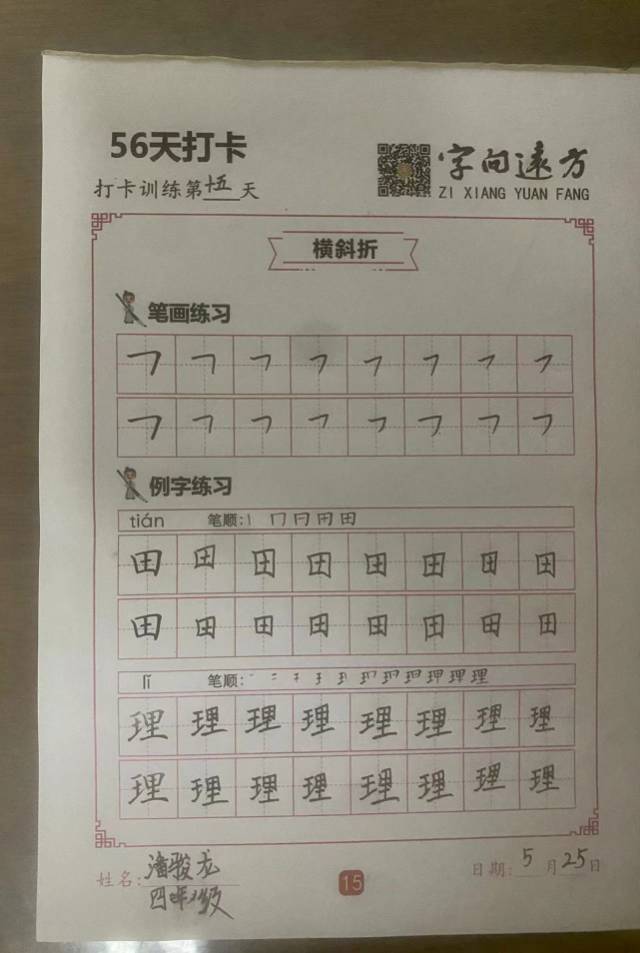 56天打卡
字向遠方
打卡训练第十五天
ZI XIANG YUAN FANG
横斜折
笔画练习
㇇ ㇇ ㇇ ㇇ ㇇ ㇇ ㇇ ㇇
㇇ ㇇ ㇇ ㇇ ㇇ ㇇ ㇇ ㇇
例字练习
tián 笔顺: 丨 冂 冃 田 田
田 田 田 田 田 田 田 田
田 田 田 田 田 田 田 田
lǐ 笔顺:
理 理 理 理 理 理 理 理
理 理 理 理 理 理 理 理
姓名: 潘骏龙
日期: 5月25日
15